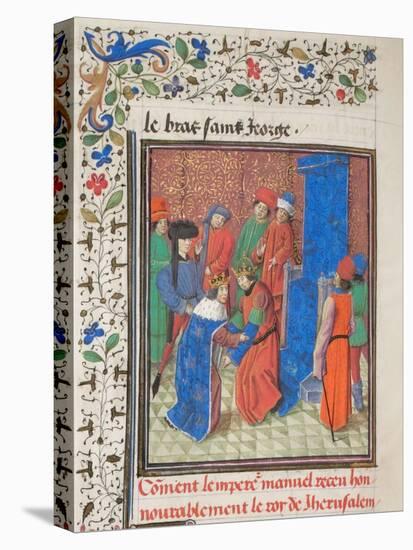 le bras saint george .
Co͂ment lempere͂ manuel receu hon
nourablement le roy de Jherusalem